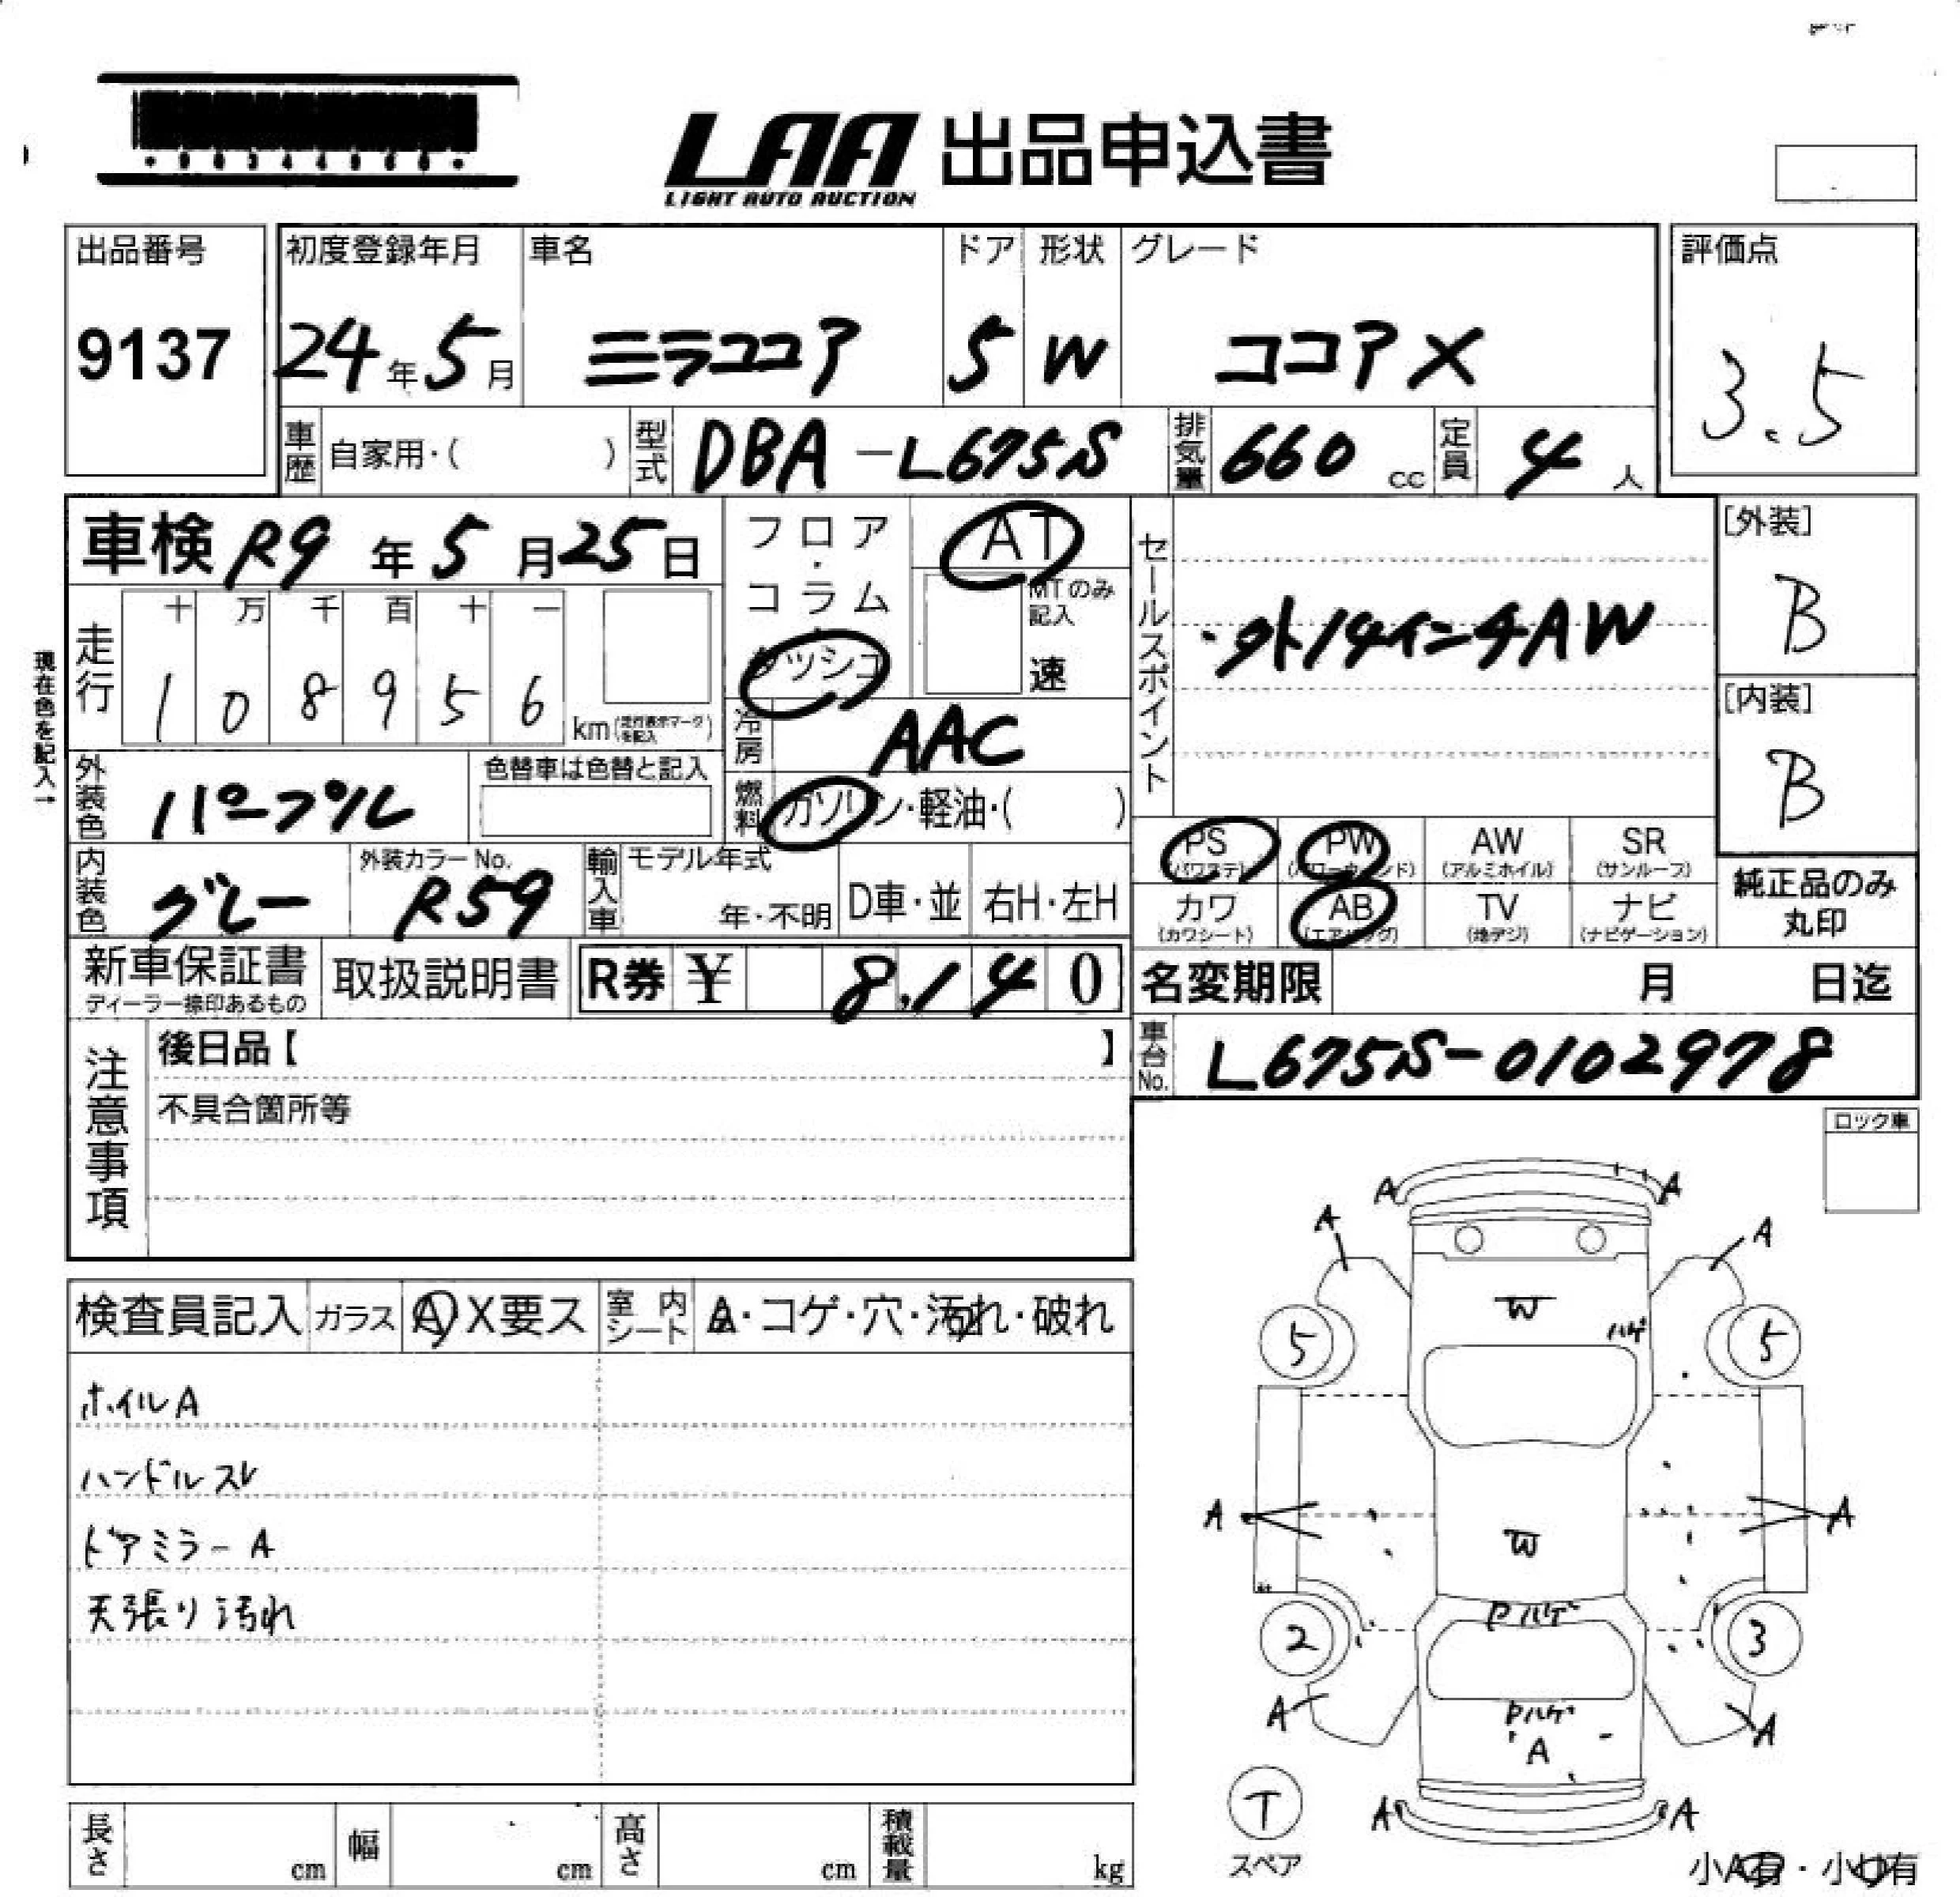 LAA 出品申込書
LIGHT AUTO AUCTION
出品番号 初度登録年月 車名 ドア 形状 グレード 評価点
9137 24年5月 ミラココア 5 W ココアX 3.5
車歴 自家用・( ) 型式 DBA-L675S 排気量 660 cc 定員 4 人
車検 R9年5月25日
フロア・コラム・ダッシュ
AT
MTのみ記入
速
セールスポイント
・外14インチAW
[外装]
B
[内装]
B
現在色を記入→
走行 十 万 千 百 十 一
1 0 8 9 5 6 km (走行表示マークを記入)
冷房 AAC
外装色 パープル 色替車は色替と記入
燃料 ガソリン・軽油・( )
内装色 グレー 外装カラーNo. R59 輸入車 モデル年式 年・不明 D車・並 右H・左H
PS (パワステ) PW (パワーウィンド) AW (アルミホイル) SR (サンルーフ)
カワ (カワシート) AB (エアバッグ) TV (地デジ) ナビ (ナビゲーション)
純正品のみ丸印
新車保証書 ディーラー捺印あるもの 取扱説明書 R券 ¥ 8,140
名変期限 月 日迄
車台No. L675S-0102978
注意事項
後日品【 】
不具合箇所等
ロック車
検査員記入 ガラス A X要ス 室内シート A・コゲ・穴・汚れ・破れ
ホイルA
ハンドルスレ
ドアミラーA
天張り汚れ
A A
A A
W
ハゲ
5 5
A A
W
Pハゲ
2 3
Pハゲ
A A
A
T
スペア
A A
小A有・小U有
長さ cm 幅 cm 高さ cm 積載量 kg